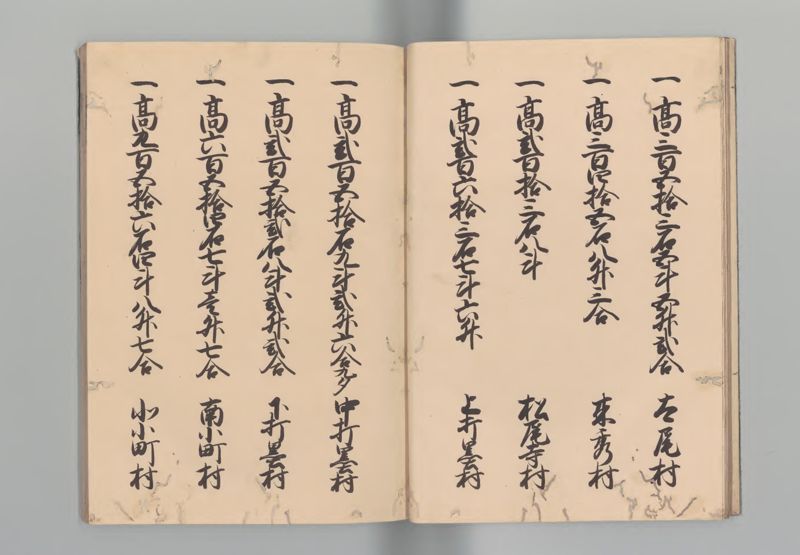 一高三百五拾三石五斗五升弐合 大尾村
一高三百四拾五石八升三合 末秀村
一高弐百拾三石八斗 松尾寺村
一高弐百六拾三石七斗六升 上打墨村
一高弐百五拾石九斗弐升六合九夕 中打墨村
一高弐百五拾弐石八斗弐升弐合 下打墨村
一高六百五拾四石七斗壱升七合 南小町村
一高九百五拾六石四斗八升七合 北小町村